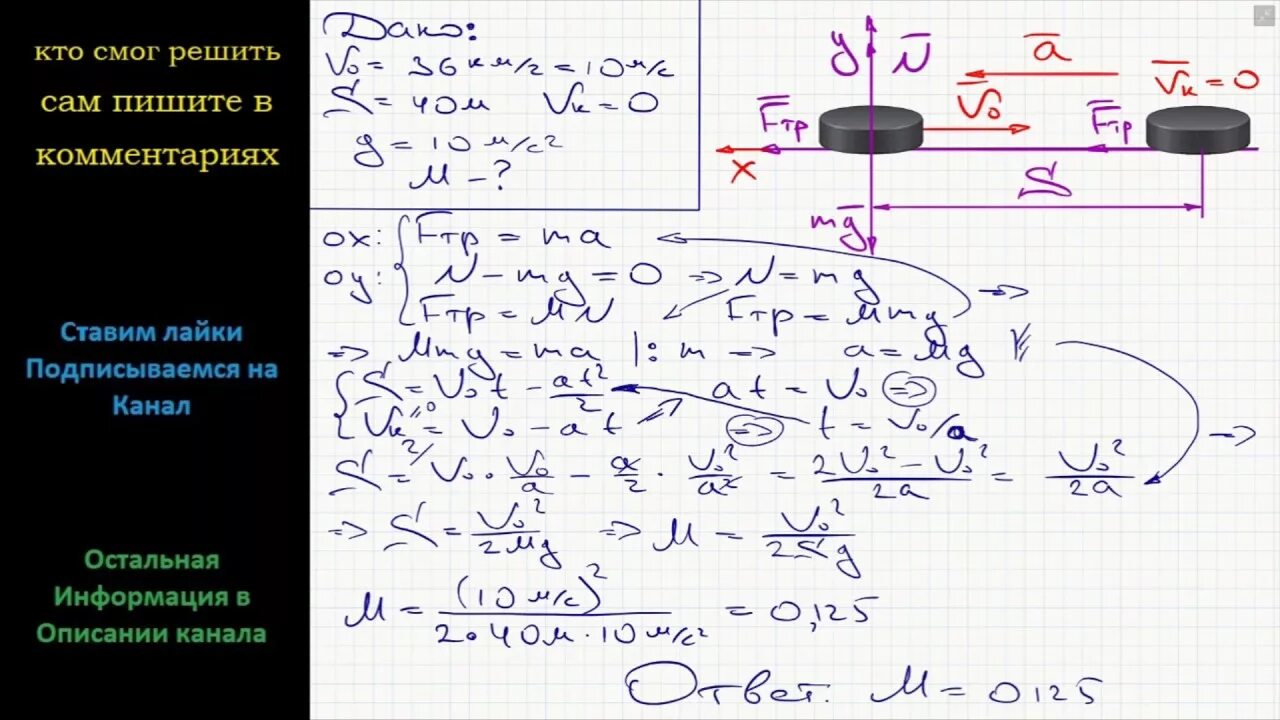 кто смог решить
сам пишите в
комментариях
Ставим лайки
Подписываемся на
Канал
Остальная
Информация в
Описании канала
Дано:
V₀ = 36 км/г = 10 м/с
S = 40м Vк = 0
g = 10 м/с²
μ - ?
y N̅ a̅ V̅к = 0
F̅тр V̅₀ F̅тр
x S
mg̅
ox: { Fтр = ma
oy: N - mg = 0 => N = mg
Fтр = μN Fтр = μmg =>
=> μmg = ma |: m => a = μg
{ S = V₀t - at²/2 at = V₀ =>
Vк⁼⁰ = V₀ - at => t = V₀/a =>
S = ²/ V₀ · V₀/a - a/2 · V₀²/a² = (2V₀² - V₀²)/2a = V₀²/2a
=> S = V₀²/2μg => μ = V₀²/2Sg
μ = (10 м/с)²/2·40м·10 м/с² = 0,125
Ответ: μ = 0,125